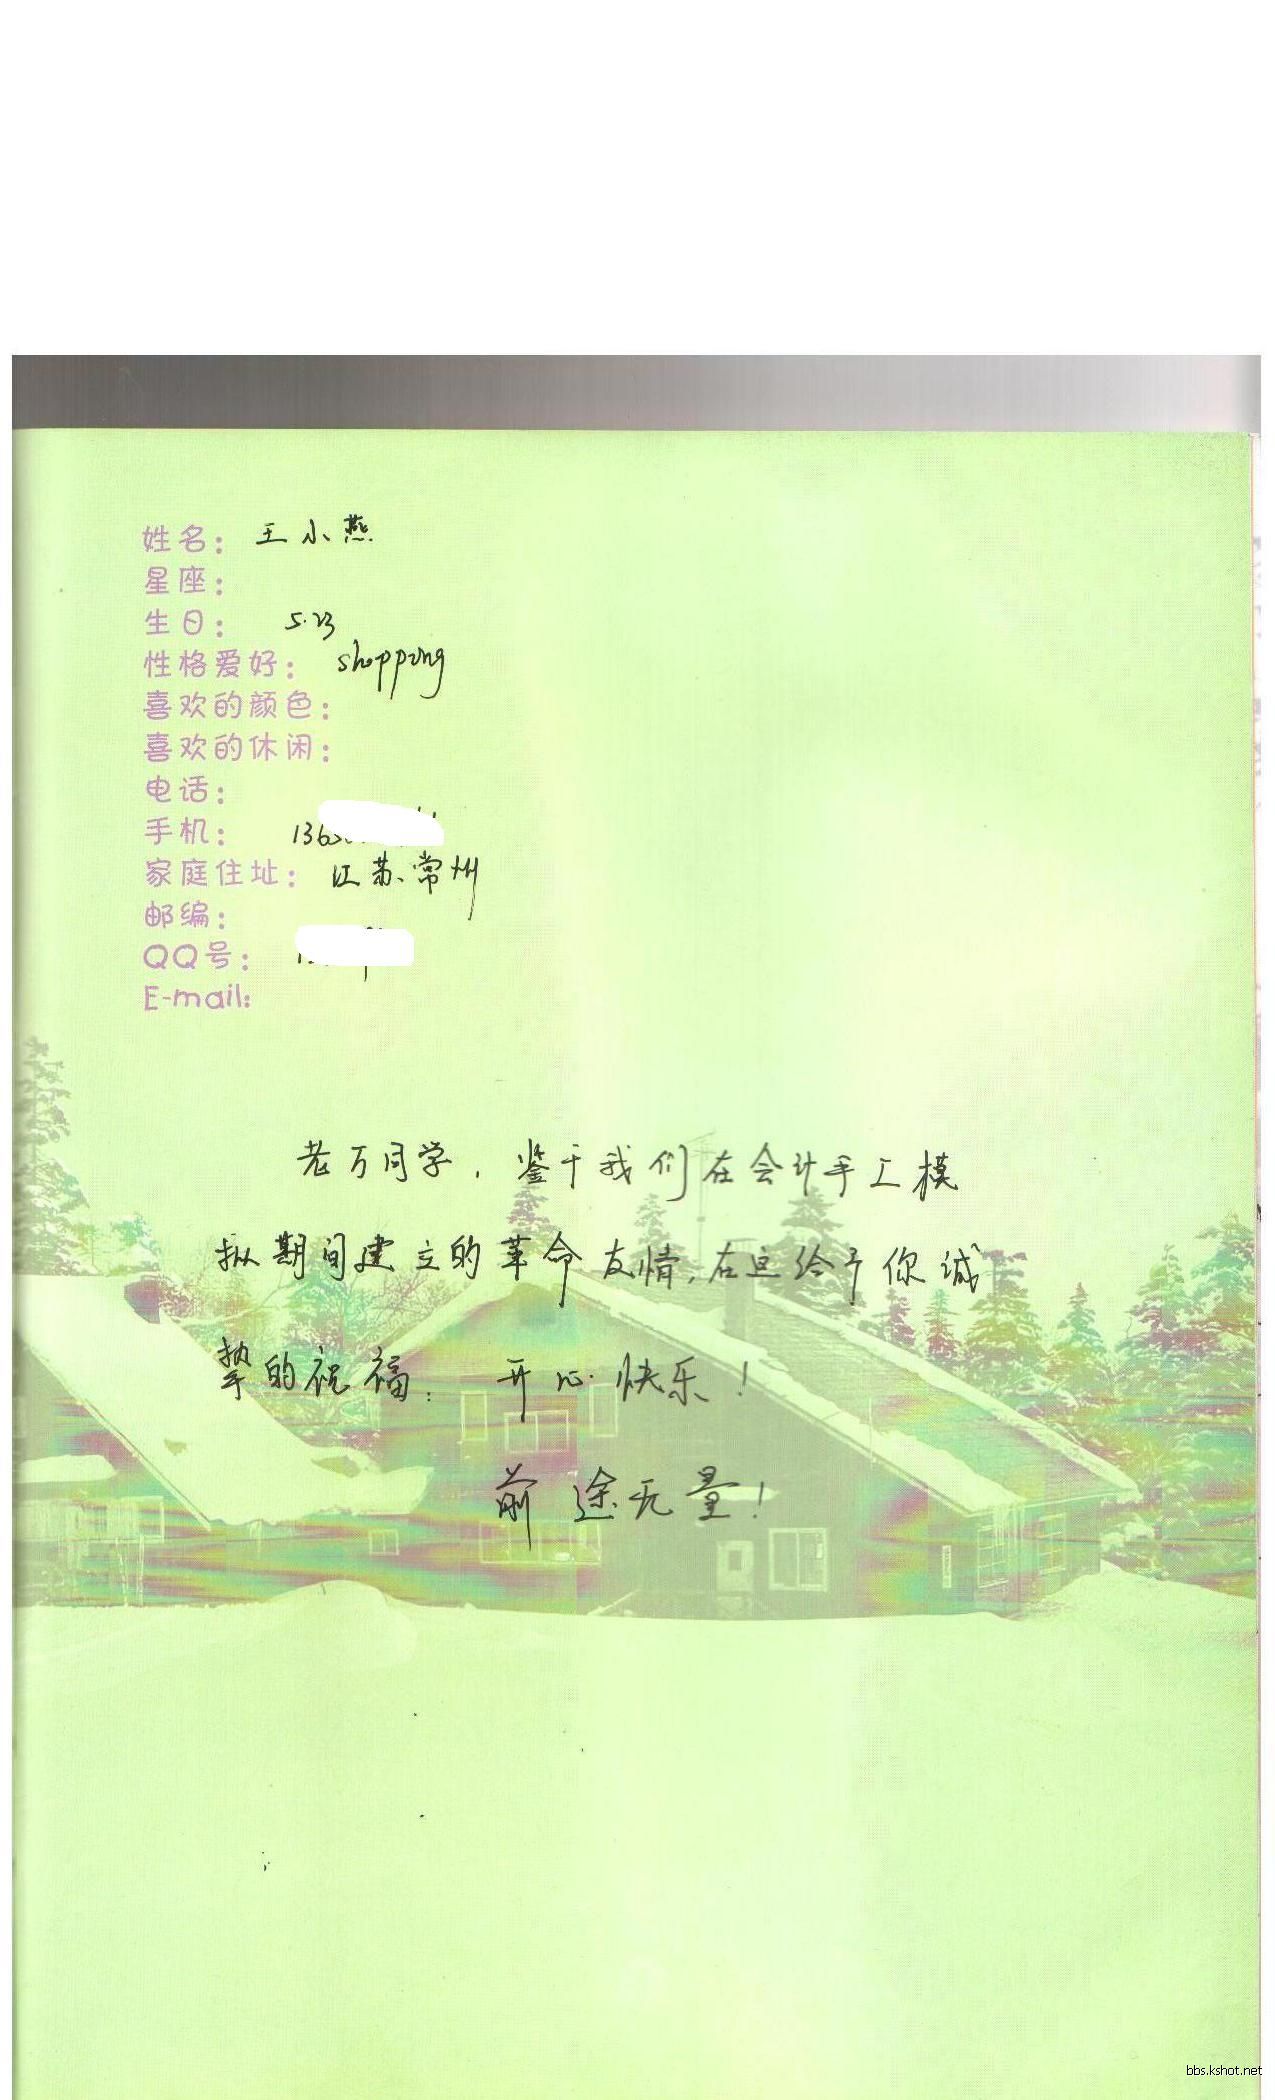 姓名： 王小燕
星座：
生日： 5.23
性格爱好： shopping
喜欢的颜色：
喜欢的休闲：
电话：
手机： 136
家庭住址： 江苏常州
邮编：
QQ号：
E-mail:
老万同学，鉴于我们在会计手工模
拟期间建立的革命友情，在这给予你诚
挚的祝福： 开心快乐！
前途无量！
bbs.kshot.net